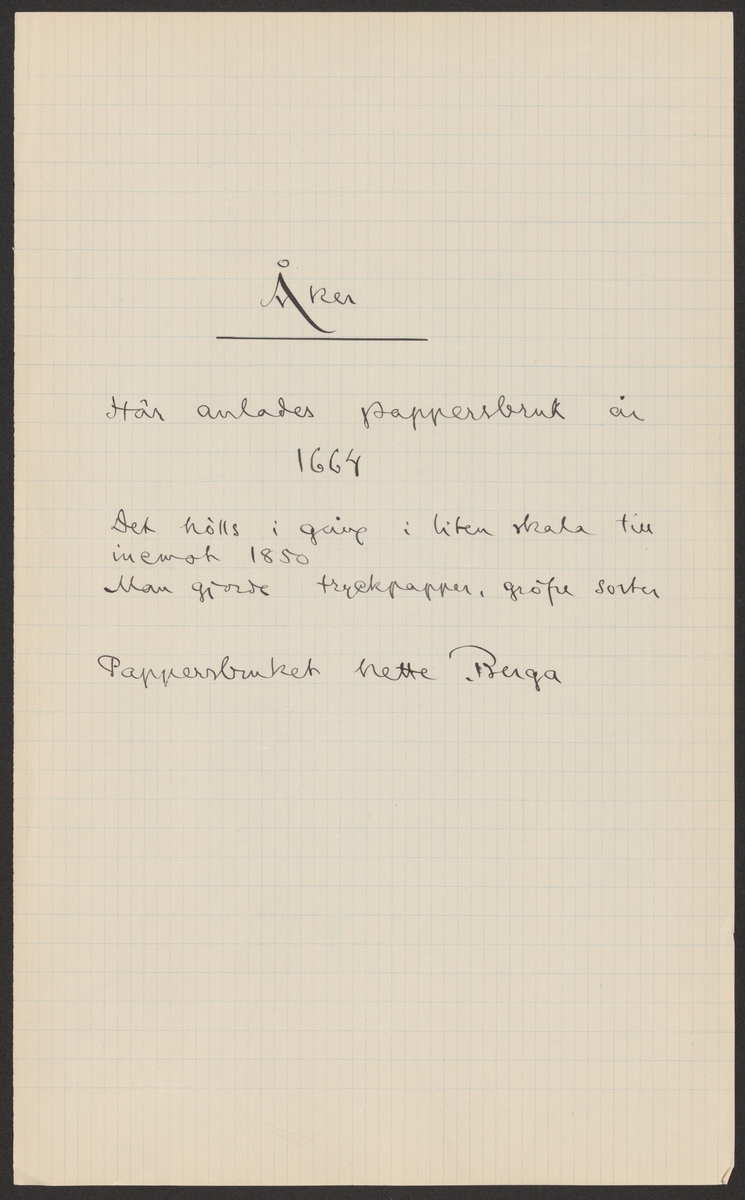 Åker
Här anlades pappersbruk år
1664
Det hölls i gång i liten skala till
inemot 1850
Man gjorde tryckpapper, gröfre sorter
Pappersbruket hette Berga